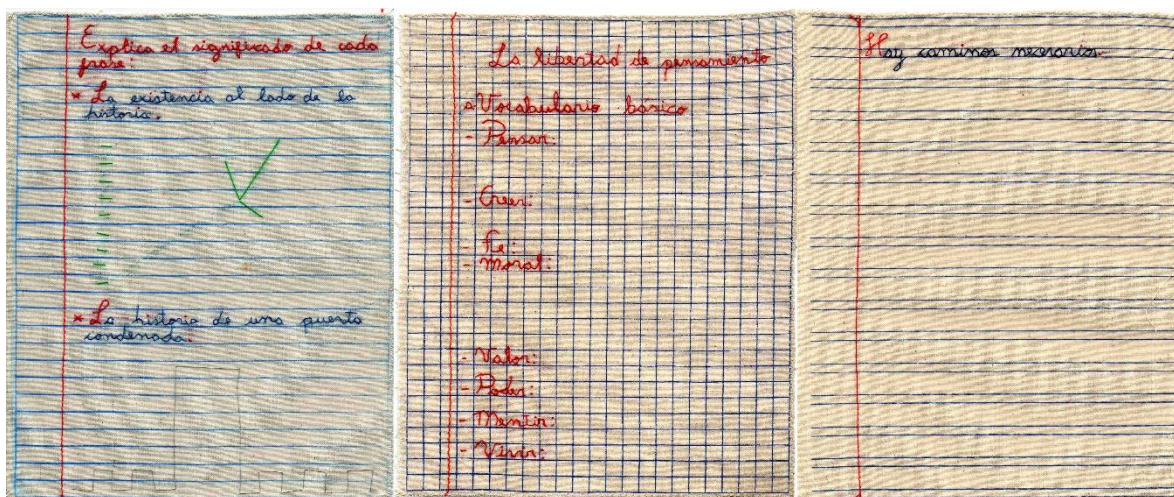 Explica el significado de cada
frase:
* La existencia al lado de la
historia.
* La historia de una puerta
condenada.
La libertad de pensamiento
Vocabulario básico
- Pensar:
- Creer:
- Fe:
- Moral:
- Valor:
- Poder:
- Mentir:
- Vivir:
Hay caminos necesarios.